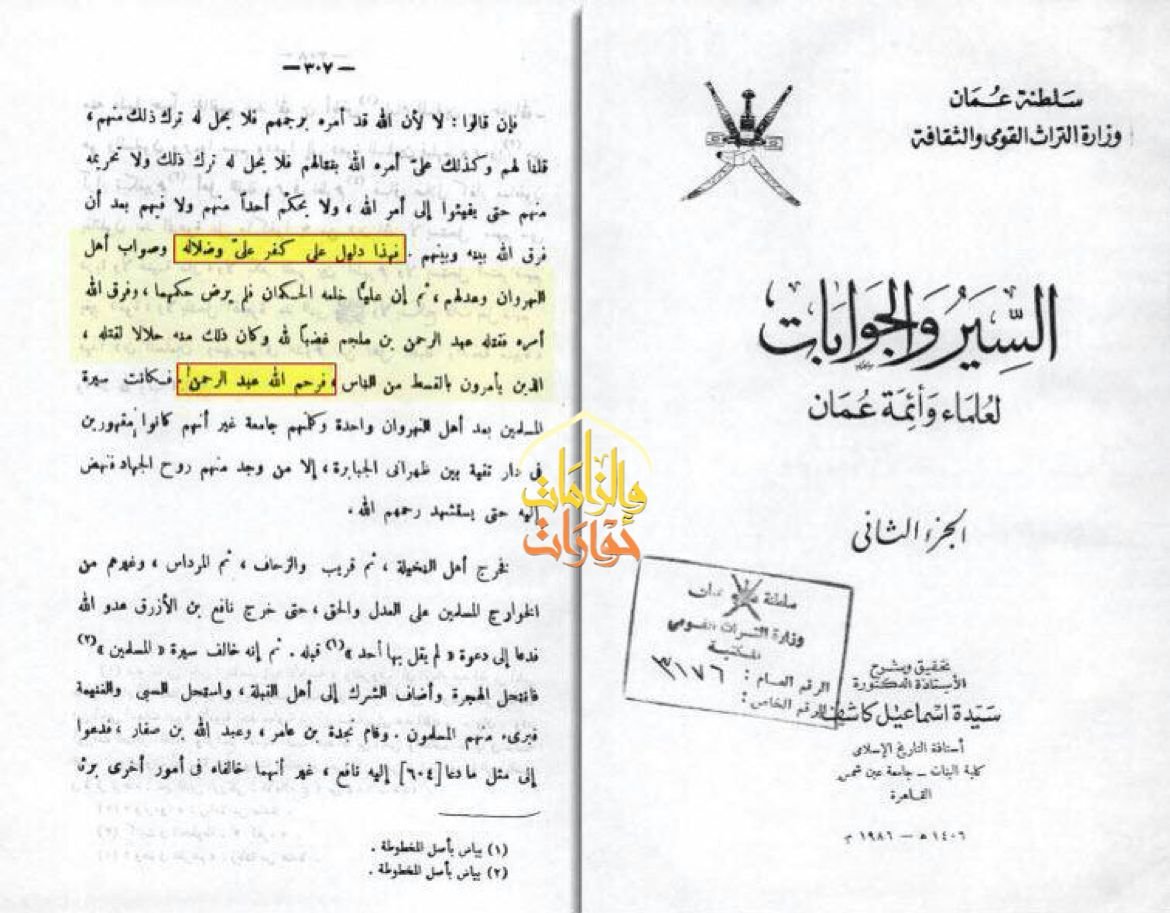 سلطنة عمان
وزارة التراث القومى والثقافة
السير والجوابات
لعلماء وأئمة عمان
الجزء الثانى
سلطنة عمان
وزارة التراث القومي
المكتبة
الرقم العام : ٣١٧٦
الرقم الخاص :
تحقيق وشرح
الأستاذة الدكتورة
سيدة اسماعيل كاشف
أستاذة التاريخ الإسلامى
كلية البنات — جامعة عين شمس
القاهرة
١٤٠٦ ه — ١٩٨٦ م
— ٣٠٧ —
فإن قالوا : لا لأن الله قد أمره برجمهم فلا يحل له ترك ذلك منهم ،
قلنا لهم وكذلك علىّ أمره الله بقتالهم فلا يحل له ترك ذلك ولا تحريمه
منهم حتى يفيئوا إلى أمر الله ، ولا يحكّم أحداً منهم ولا فيهم بعد أن
فرق الله بينه وبينهم . فهذا دليل على كفر علىّ وضلاله وصواب أهل
النهروان وعدلهم ، ثم إن عليًّا خلعه الحكمان فلم يرض حكمهما ، وفرق الله
أمره فقتله عبد الرحمن بن ملجم غضبًا لله وكان ذلك منه حلالا لقتله ،
الذين يأمرون بالقسط من الناس ، فرحم الله عبد الرحمن . فكانت سيرة
المسلمين بعد أهل النهروان واحدة وكلمتهم جامعة غير أنهم كانوا مقهورين
فى دار تقية بين ظهرانى الجبابرة ، إلا من وجد منهم روح الجهاد فنهض
إليه حتى يستشهد رحمهم الله .
فخرج أهل النخيلة ، ثم قريب والزحاف ، ثم المرداس ، وغيرهم من
الخوارج المسلمين على العدل والحق ، حتى خرج نافع بن الأزرق عدو الله
فدعا إلى دعوة « لم يقل بها أحد »(١) قبله . ثم إنه خالف سيرة « المسلمين »(٢)
فانتحل الهجرة وأضاف الشرك إلى أهل القبلة ، واستحل السبى والغنيمة
فبرىء منهم المسلمون . وقام نجدة بن عامر ، وعبد الله بن صفار ، فدعوا
إلى مثل ما دعا [٦٠٤] إليه نافع ، غير أنهما خالفاه فى أمور أخرى برئا
(١) بياض بأصل المخطوطة .
(٢) بياض بأصل المخطوطة .
حوارات
والزامات